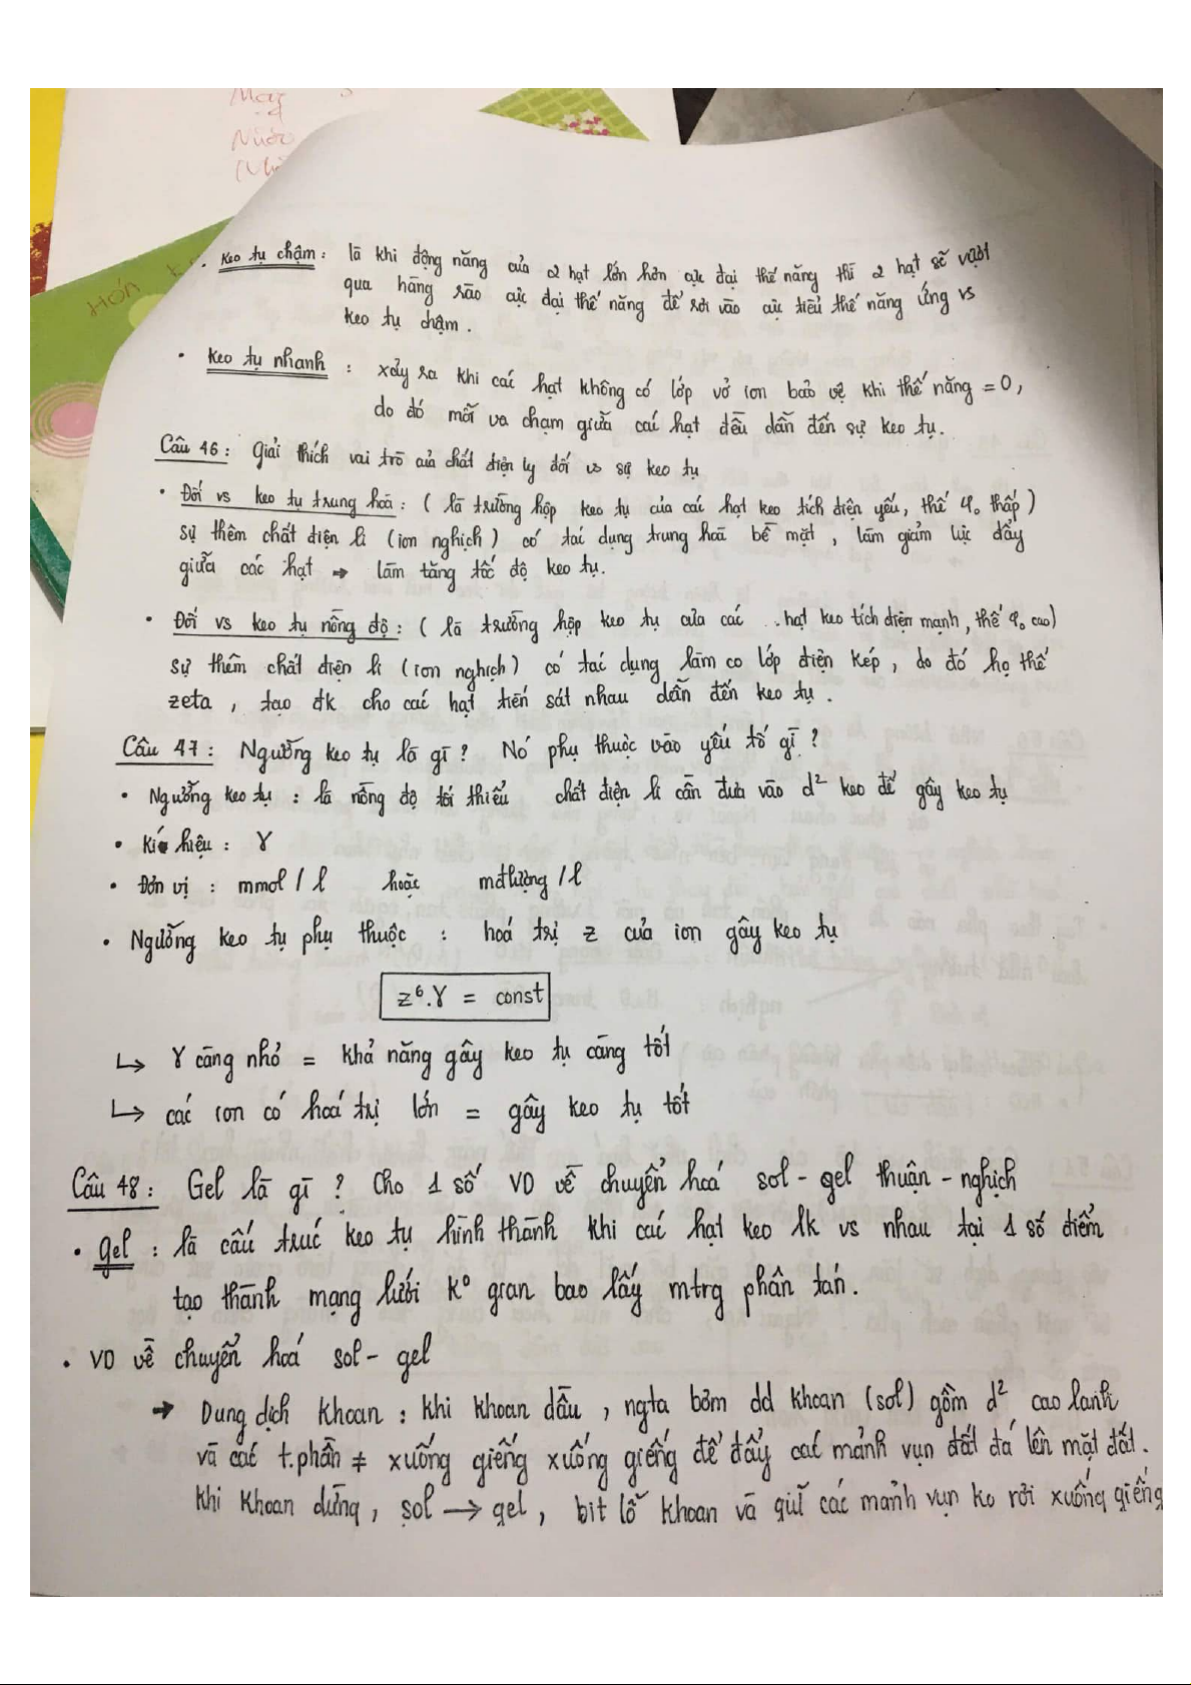 May
Nước
Hón
• Keo tụ chậm : là khi động năng của 2 hạt lớn hơn cực đại thế năng thì 2 hạt sẽ vượt
qua hàng rào cực đại thế năng để rơi vào cực tiểu thế năng ứng vs
keo tụ chậm.
• Keo tụ nhanh : xảy ra khi các hạt không có lớp vỏ ion bảo vệ khi thế năng = 0,
do đó mỗi va chạm giữa các hạt đều dẫn đến sự keo tụ.
Câu 46 : Giải thích vai trò của chất điện ly đối vs sự keo tụ
• Đối vs keo tụ trung hoà : ( là trường hợp keo tụ của các hạt keo tích điện yếu, thế φ₀ thấp )
sự thêm chất điện li ( ion nghịch ) có tác dụng trung hoà bề mặt , làm giảm lực đẩy
giữa các hạt → làm tăng tốc độ keo tụ.
• Đối vs keo tụ nồng độ : ( là trường hợp keo tụ của các .. hạt keo tích điện mạnh, thế φ₀ cao)
sự thêm chất điện li ( ion nghịch ) có tác dụng làm co lớp điện kép , do đó hạ thế
zeta , tạo đk cho các hạt tiến sát nhau dẫn đến keo tụ.
Câu 47 : Ngưỡng keo tụ là gì ? Nó phụ thuộc vào yếu tố gì ?
• Ngưỡng keo tụ : là nồng độ tối thiểu chất điện li cần đưa vào d² keo để gây keo tụ
• Kí hiệu : γ
• Đơn vị : mmol / l hoặc mđlượng / l
• Ngưỡng keo tụ phụ thuộc : hoá trị z của ion gây keo tụ
z⁶.γ = const
↳ γ càng nhỏ = khả năng gây keo tụ càng tốt
↳ các ion có hoá trị lớn = gây keo tụ tốt
Câu 48 : Gel là gì ? Cho 1 số VD về chuyển hoá sol - gel thuận - nghịch
• gel : là cấu trúc keo tụ hình thành khi các hạt keo lk vs nhau tại 1 số điểm
tạo thành mạng lưới k⁰ gian bao lấy mtrg phân tán.
• VD về chuyển hoá sol - gel
→ Dung dịch khoan : khi khoan dầu , ngta bơm dd khoan (sol) gồm d² cao lanh
và các t.phần ≠ xuống giếng xuống giếng để đẩy các mảnh vụn đất đá lên mặt đất.
khi khoan dừng , sol → gel , bịt lỗ khoan và giữ các mảnh vụn ko rơi xuống giếng